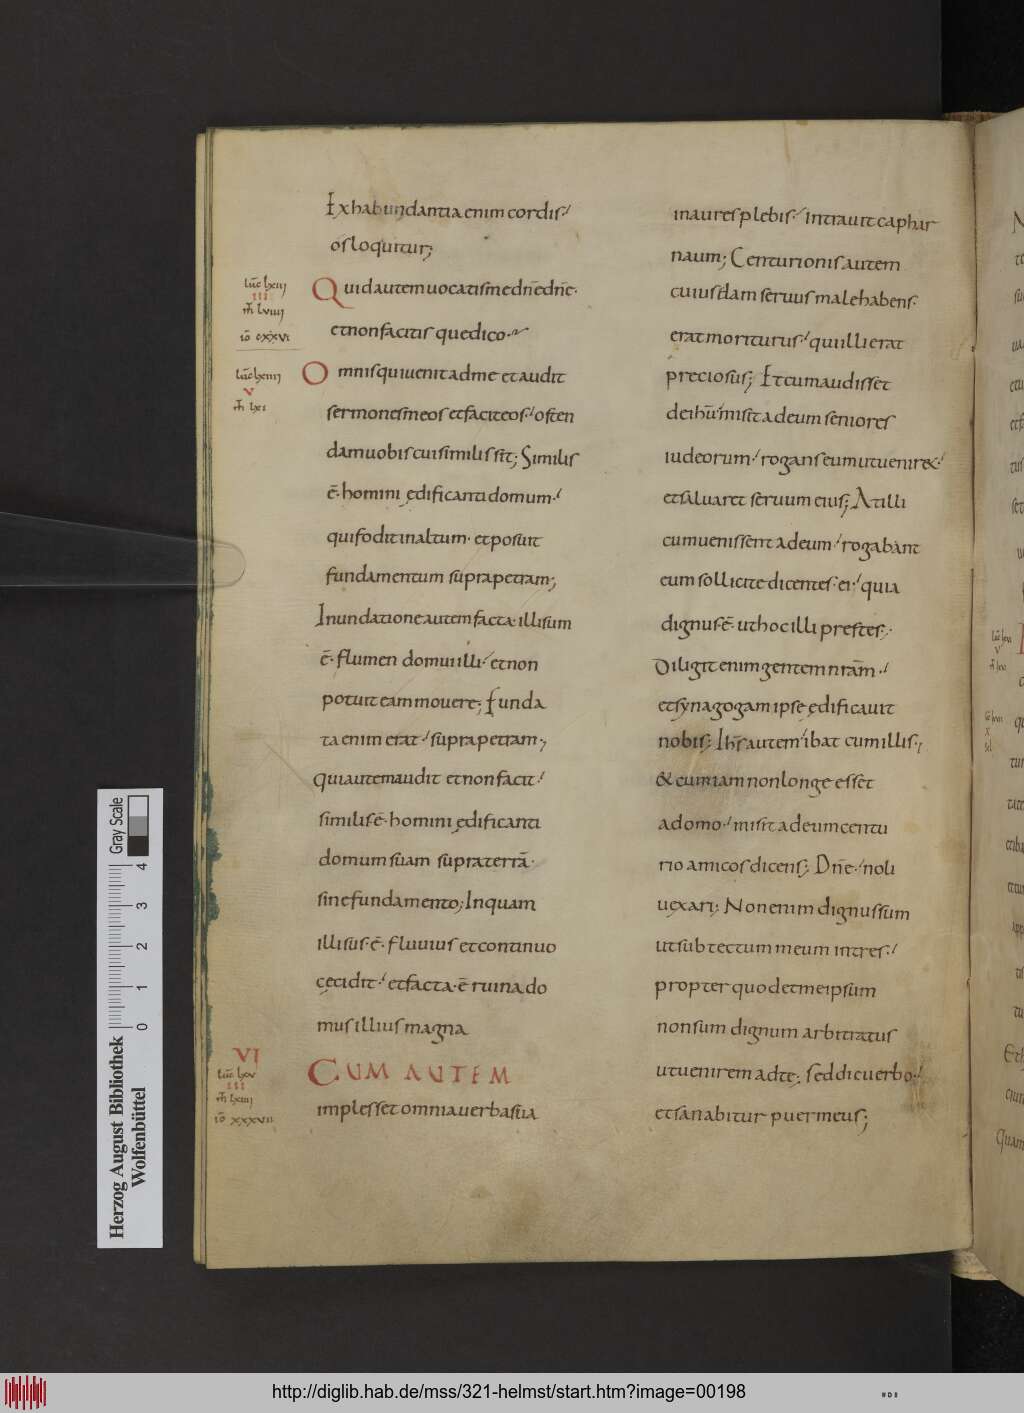 Exhabundantia enim cordis
os loquitur;
Quid autem uocatis me dn̄e dn̄e·
et non facitis que dico·
Omnis qui uenit ad me et audit
sermones meos et facit eos· osten
dam uobis cui similis sit; Similis
ē· homini ędificanti domum·
qui fodit in altum· et posuit
fundamentum supra petram;
Inundatione autem facta· illisum
ē· flumen domui illi· et non
potuit eam mouere; Funda
ta enim erat· supra petram·,
qui autem audit et non facit·
similis ē· homini ędificanti
domum suam supra terrā·
sine fundamento; In quam
illisus· ē· fluuius et continuo
cęcidit· et facta· ē ruina do
mus illius magna
CUM AUTEM
implesset omnia uerba sua
luc̄ lxiii
III
m̄ lviiii
iō cxxvi
luc̄ lxiiii
V
m̄ lxi
VI
luc̄ lxv
III
m̄ lxiiii
iō xxxvii
in aures plebis· intrauit caphar
naum; Centurionis autem
cuiusdam seruus male habens·
erat moriturus· qui illi erat
preciosus; Et cum audisset
de ihū· misit ad eum seniores
iudeorum· rogans eum ut uenir&·
et saluaret seruum eius; At illi
cum uenissent ad eum· rogabant
eum sollicite dicentes· ei· quia
dignus ē· ut hoc illi prestes·
Diligit enim gentem nrām·
et synagogam ipse ędificauit
nobis; Ihs̄ autem ibat cum illis·,
& cum iam non longe esset
a domo· misit ad eum centu
rio amicos dicens; Dn̄e· noli
uęxari; Non enim dignus sum
ut sub tectum meum intres·
propter quod et me ipsum
non sum dignum arbitratus
ut uenirem ad te; sed dic uerbo·
et sanabitur puer meus;
Herzog August Bibliothek
Wolfenbüttel
Gray Scale
0 1 2 3 4
http://diglib.hab.de/mss/321-helmst/start.htm?image=00198